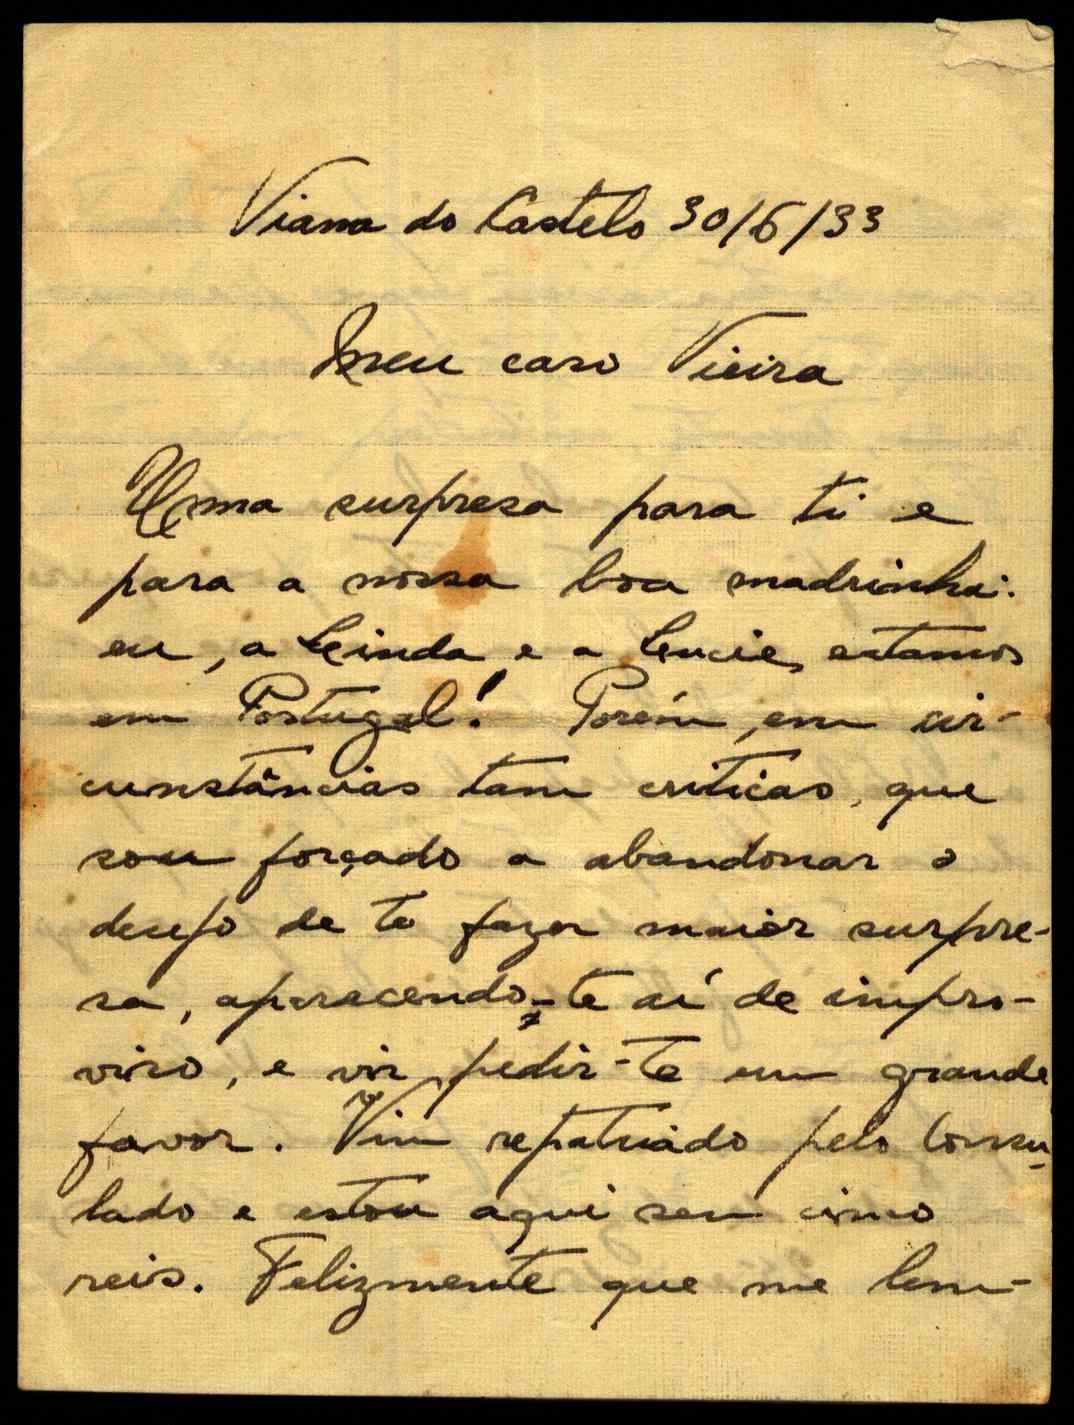 Viana do Castelo 30/6/33
Meu caro Vieira
Uma surpresa para ti e
para a nossa boa madrinha:
eu, a Linda e a Lucie, estamos
em Portugal! Porém, em cir-
cunstâncias tam criticas, que
sou forçado a abandonar o
desejo de te fazer maior surpre-
sa, aparecendo-te aí de impro-
viso, e vir pedir-te um grande
favor. Vim repatriado pelo Consu-
lado e estou aqui sem cinco
reis. Felizmente que me lem-